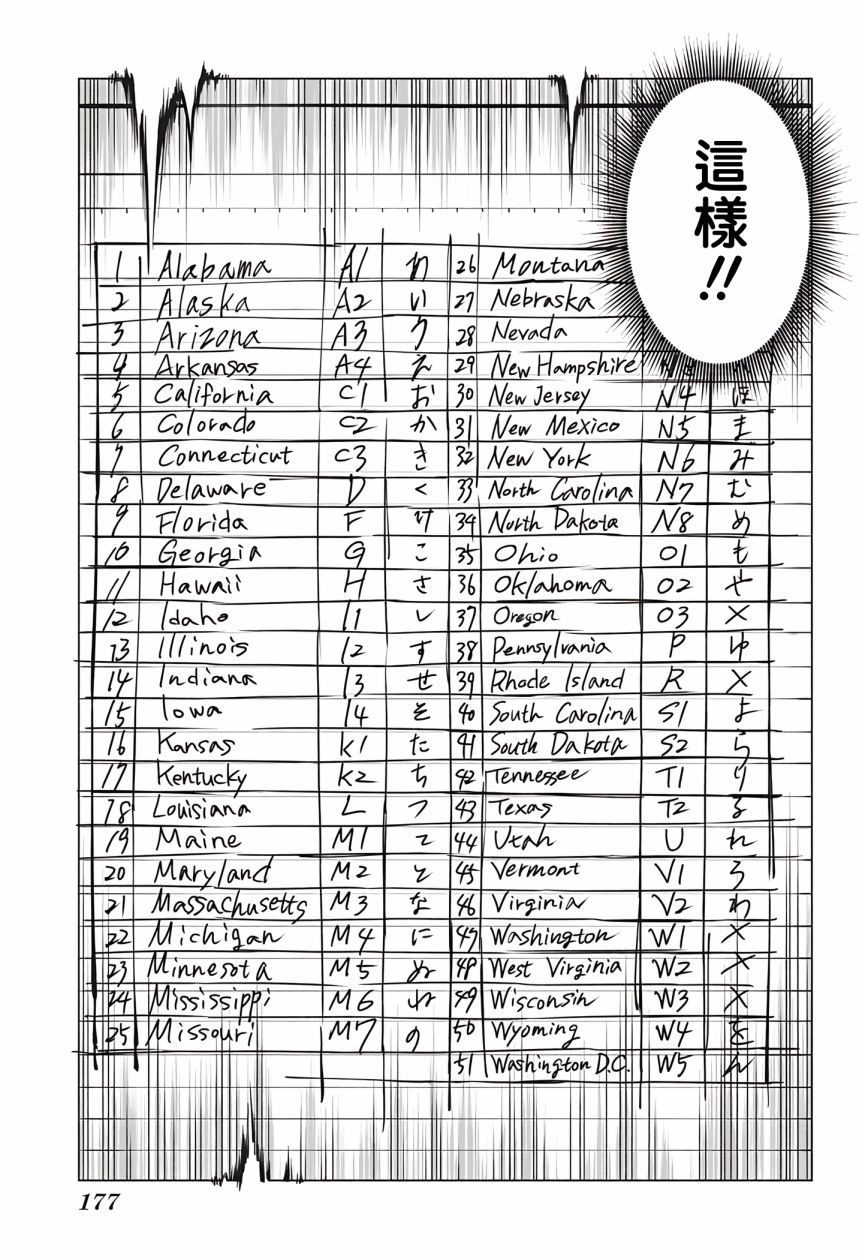 這樣!!
1 Alabama A1 あ 26 Montana
2 Alaska A2 い 27 Nebraska
3 Arizona A3 う 28 Nevada
4 Arkansas A4 え 29 New Hampshire
5 California C1 お 30 New Jersey N4 ほ
6 Colorado C2 か 31 New Mexico N5 ま
7 Connecticut C3 き 32 New York N6 み
8 Delaware D く 33 North Carolina N7 む
9 Florida F け 34 North Dakota N8 め
10 Georgia G こ 35 Ohio O1 も
11 Hawaii H さ 36 Oklahoma O2 や
12 Idaho I1 し 37 Oregon O3 ×
13 Illinois I2 す 38 Pennsylvania P ゆ
14 Indiana I3 せ 39 Rhode Island R ×
15 Iowa I4 そ 40 South Carolina S1 よ
16 Kansas K1 た 41 South Dakota S2 ら
17 Kentucky K2 ち 42 Tennessee T1 り
18 Louisiana L つ 43 Texas T2 る
19 Maine M1 て 44 Utah U れ
20 Maryland M2 と 45 Vermont V1 ろ
21 Massachusetts M3 な 46 Virginia V2 わ
22 Michigan M4 に 47 Washington W1 ×
23 Minnesota M5 ぬ 48 West Virginia W2 ×
24 Mississippi M6 ね 49 Wisconsin W3 ×
25 Missouri M7 の 50 Wyoming W4 を
51 Washington D.C. W5 ん
177